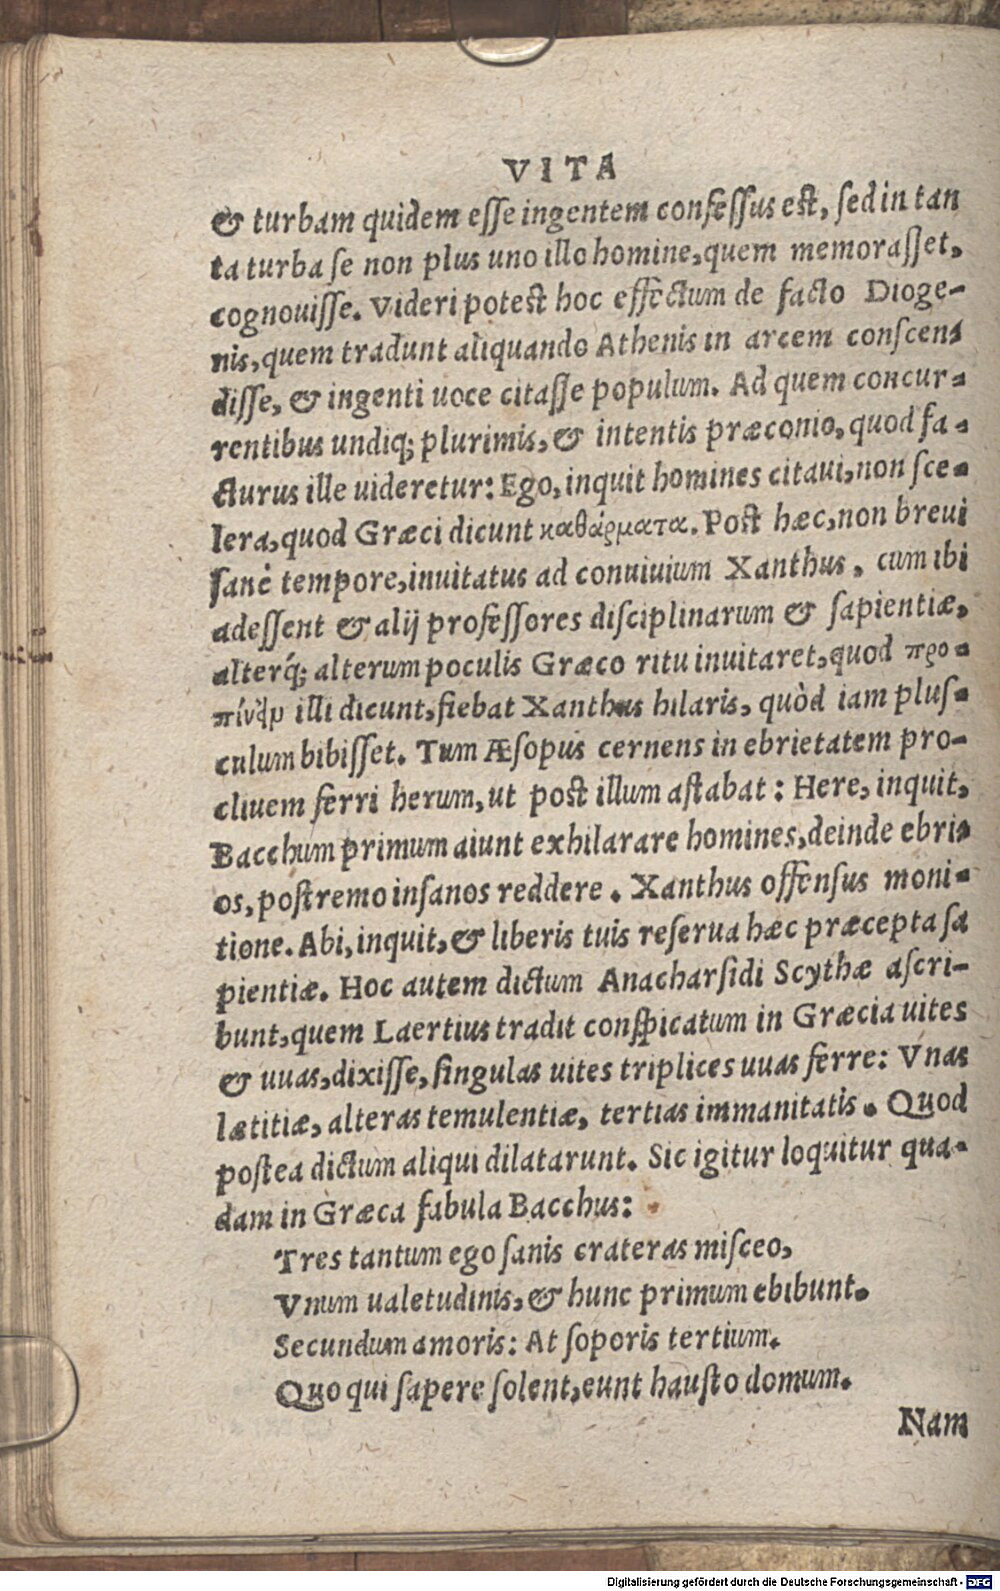 VITA
& turbam quidem esse ingentem confessus est, sed in tan
ta turba se non plus uno illo homine, quem memorasset,
cognouisse. Videri potest hoc effectum de facto Dioge-
nis, quem tradunt aliquando Athenis in arcem conscen-
disse, & ingenti uoce citasse populum. Ad quem concur-
rentibus undiq; plurimis, & intentis præconio, quod fa-
cturus ille uideretur: Ego, inquit homines citaui, non sce-
lera, quod Græci dicunt καθάρματα. Post hæc, non breui
sanè tempore, inuitatus ad conuiuium Xanthus, cum ibi
adessent & alij professores disciplinarum & sapientiæ,
alterq́; alterum poculis Græco ritu inuitaret, quod προ-
πίνειν illi dicunt, fiebat Xanthus hilaris, quòd iam plus-
culum bibisset. Tum Æsopus cernens in ebrietatem pro-
cliuem ferri herum, ut post illum astabat: Here, inquit,
Bacchum primum aiunt exhilarare homines, deinde ebri-
os, postremo insanos reddere. Xanthus offensus moni-
tione. Abi, inquit, & liberis tuis reserua hæc præcepta sa
pientiæ. Hoc autem dictum Anacharsidi Scythæ ascri-
bunt, quem Laertius tradit conspicatum in Græcia uites
& uuas, dixisse, singulas uites triplices uuas ferre: Vnas
lætitiæ, alteras temulentiæ, tertias immanitatis. Quod
postea dictum aliqui dilatarunt. Sic igitur loquitur qua-
dam in Græca fabula Bacchus:
Tres tantum ego sanis crateras misceo,
Vnum ualetudinis, & hunc primum ebibunt.
Secundum amoris: At soporis tertium.
Quo qui sapere solent, eunt hausto domum.
Nam
Digitalisierung gefördert durch die Deutsche Forschungsgemeinschaft - DFG